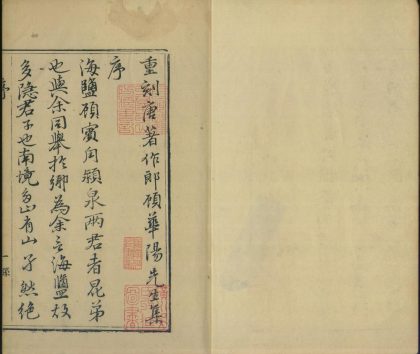 重刻唐著作郎顧華陽先生集
序
海鹽顧賓用穎泉兩君者昆弟
也與余同舉於鄉為余言海鹽故
多隱君子也南境多山有山孑然絕
序
一